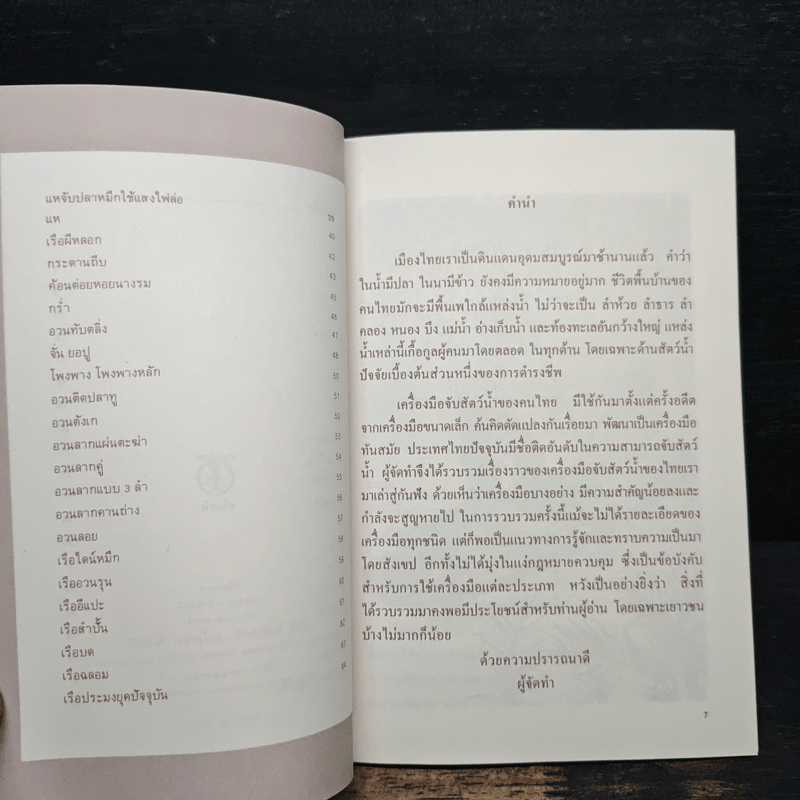 แหจับปลาหมึกใช้แสงไฟล่อ
แห 39
เรือผีหลอก 40
กระดานถีบ 42
ค้อนต่อยหอยนางรม 43
กร่ำ 45
อวนทับตลิ่ง 46
จั่น ยอปู 47
โพงพาง โพงพางหลัก 48
อวนติดปลาทู 50
อวนตังเก 51
อวนลากแผ่นตะเฆ่ 52
อวนลากคู่ 53
อวนลากแบบ 3 ลำ 54
อวนลากคานถ่าง 56
อวนลอย 57
เรือไดน์หมึก 58
เรืออวนรุน 59
เรืออีแปะ 60
เรือสำปั้น 61
เรือบด 62
เรือฉลอม 63
เรือประมงยุคปัจจุบัน 64
คำนำ
เมืองไทยเราเป็นดินแดนอุดมสมบูรณ์มาช้านานแล้ว คำว่า
ในน้ำมีปลา ในนามีข้าว ยังคงมีความหมายอยู่มาก ชีวิตพื้นบ้านของ
คนไทยมักจะมีพื้นเพใกล้แหล่งน้ำ ไม่ว่าจะเป็น ลำห้วย ลำธาร ลำ
คลอง หนอง บึง แม่น้ำ อ่างเก็บน้ำ และท้องทะเลอันกว้างใหญ่ แหล่ง
น้ำเหล่านี้เกื้อกูลผู้คนมาโดยตลอด ในทุกด้าน โดยเฉพาะด้านสัตว์น้ำ
ปัจจัยเบื้องต้นส่วนหนึ่งของการดำรงชีพ
เครื่องมือจับสัตว์น้ำของคนไทย มีใช้กันมาตั้งแต่ครั้งอดีต
จากเครื่องมือขนาดเล็ก ค้นคิดดัดแปลงกันเรื่อยมา พัฒนาเป็นเครื่องมือ
ทันสมัย ประเทศไทยปัจจุบันมีชื่อติดอันดับในความสามารถจับสัตว์
น้ำ ผู้จัดทำจึงได้รวบรวมเรื่องราวของเครื่องมือจับสัตว์น้ำของไทยเรา
มาเล่าสู่กันฟัง ด้วยเห็นว่าเครื่องมือบางอย่าง มีความสำคัญน้อยลงและ
กำลังจะสูญหายไป ในการรวบรวมครั้งนี้แม้จะไม่ได้รายละเอียดของ
เครื่องมือทุกชนิด แต่ก็พอเป็นแนวทางการรู้จักและทราบความเป็นมา
โดยสังเขป อีกทั้งไม่ได้มุ่งในแง่กฎหมายควบคุม ซึ่งเป็นข้อบังคับ
สำหรับการใช้เครื่องมือแต่ละประเภท หวังเป็นอย่างยิ่งว่า สิ่งที่
ได้รวบรวมมาคงพอมีประโยชน์สำหรับท่านผู้อ่าน โดยเฉพาะเยาวชน
บ้างไม่มากก็น้อย
ด้วยความปรารถนาดี
ผู้จัดทำ
7